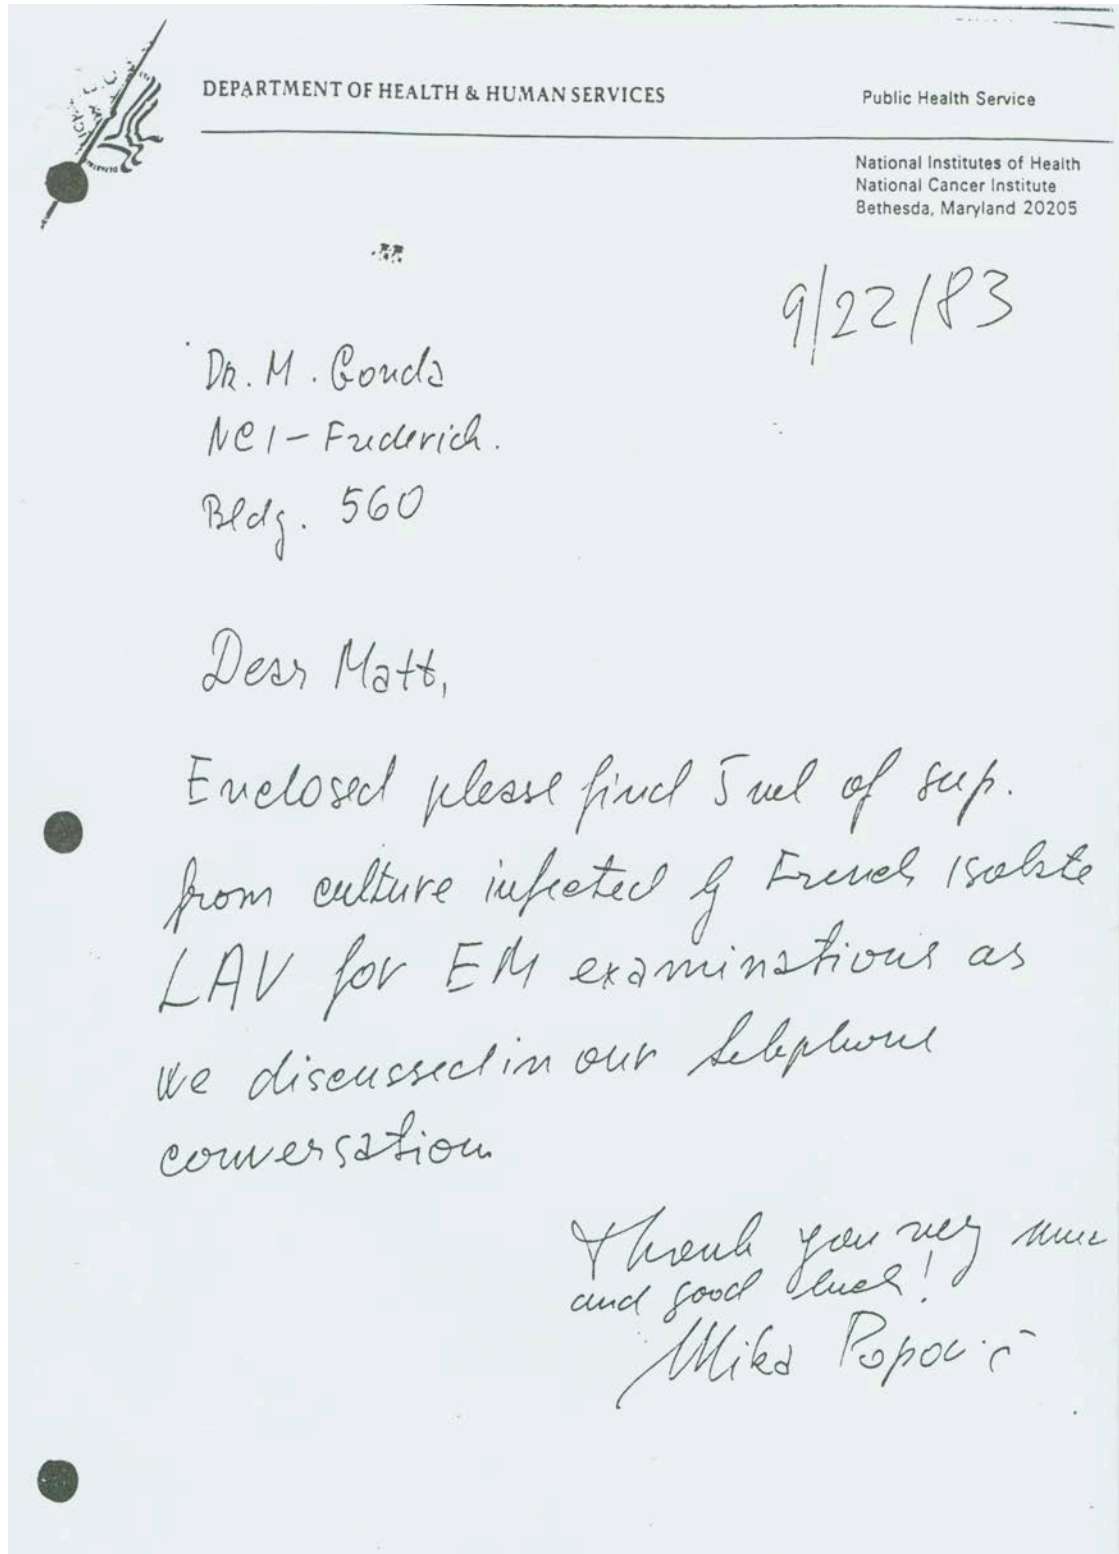 DEPARTMENT OF HEALTH & HUMAN SERVICES
Public Health Service
National Institutes of Health
National Cancer Institute
Bethesda, Maryland 20205
9/22/83
Dr. M. Gonda
NCI - Frederich.
Bldg. 560
Dear Matt,
Enclosed please find 5 ml of sup.
from culture infected by French isolate
LAV for EM examinations as
we discussed in our telephone
conversation
Thank you very muc
and good luck!
Mika Popovic